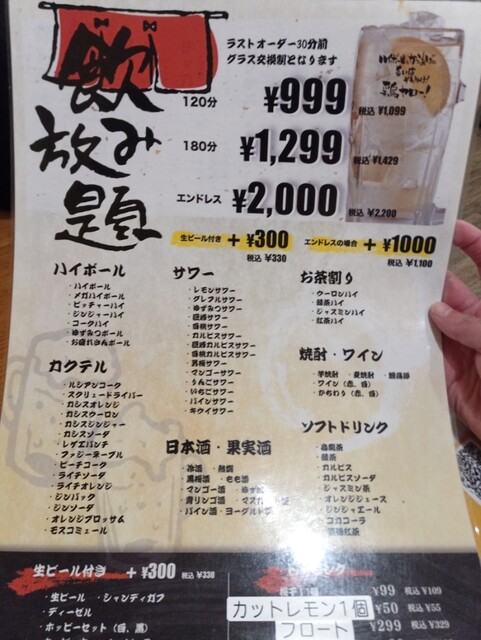 飲み放題
ラストオーダー30分前
グラス交換制となります
120分 ¥999 税込 ¥1,099
180分 ¥1,299 税込 ¥1,429
エンドレス ¥2,000 税込 ¥2,200
生ビール付き +¥300 エンドレスの場合 +¥1000
税込 ¥330 税込 ¥1,100
ハイボール
・ハイボール
・メガハイボール
・ピッチャーハイ
・ジンジャーハイ
・コークハイ
・ゆずみつボール
・お疲れさんボール
カクテル
・ルシアンコーク
・スクリュードライバー
・カシスオレンジ
・カシスウーロン
・カシスジンジャー
・カシスソーダ
・レゲエパンチ
・ファジーネーブル
・ピーチコーク
・ライチソーダ
・ライチオレンジ
・ジンバック
・ジンソーダ
・オレンジブロッサム
・モスコミュール
サワー
・レモンサワー
・グレフルサワー
・ゆずみつサワー
・巨峰サワー
・白桃サワー
・カルピスサワー
・巨峰カルピスサワー
・白桃カルピスサワー
・男梅サワー
・マンゴーサワー
・りんごサワー
・いちごサワー
・パインサワー
・キウイサワー
日本酒・果実酒
・冷酒 ・熱燗
・黒梅酒 ・もも酒
・マンゴー酒 ・ゆず酒
・青リンゴ酒 ・マスカット酒
・パイン酒・ヨーグルト酒
お茶割り
・ウーロンハイ
・緑茶ハイ
・ジャスミンハイ
・紅茶ハイ
焼酎・ワイン
・芋焼酎 ・麦焼酎
・ワイン(赤、白)
・かちわり(赤、白)
ソフトドリンク
・烏龍茶
・緑茶
・カルピス
・カルピスソーダ
・ジャスミン茶
・オレンジジュース
・ジンジャエール
・コカコーラ
生ビール付き +¥300 税込 ¥330
・生ビール ・シャンディガフ
・ディーゼル
・ホッピーセット(白、黒)
¥99 税込 ¥109
カットレモン1個 ¥50 税込 ¥55
フロート ¥299 税込 ¥329